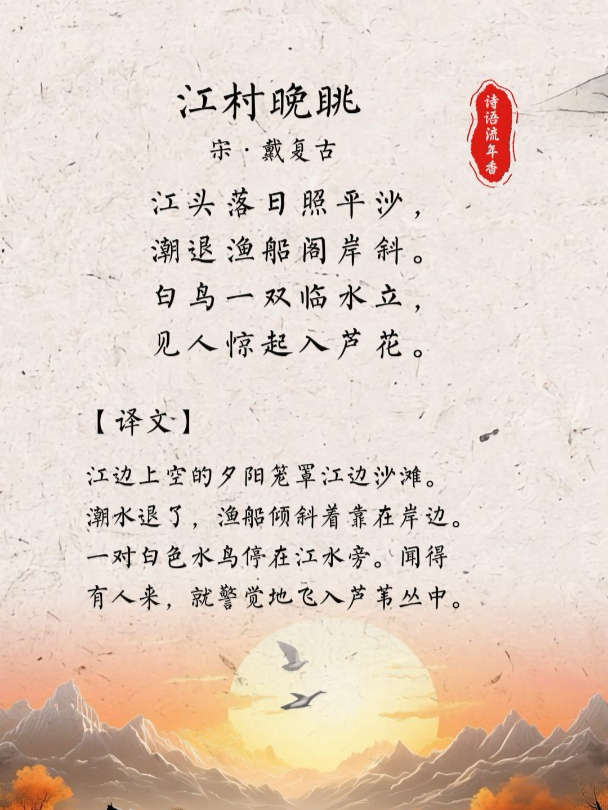 江村晚眺
宋·戴复古
诗语流年香
江头落日照平沙，
潮退渔船阁岸斜。
白鸟一双临水立，
见人惊起入芦花。
【译文】
江边上空的夕阳笼罩江边沙滩。
潮水退了，渔船倾斜着靠在岸边。
一对白色水鸟停在江水旁。闻得
有人来，就警觉地飞入芦苇丛中。